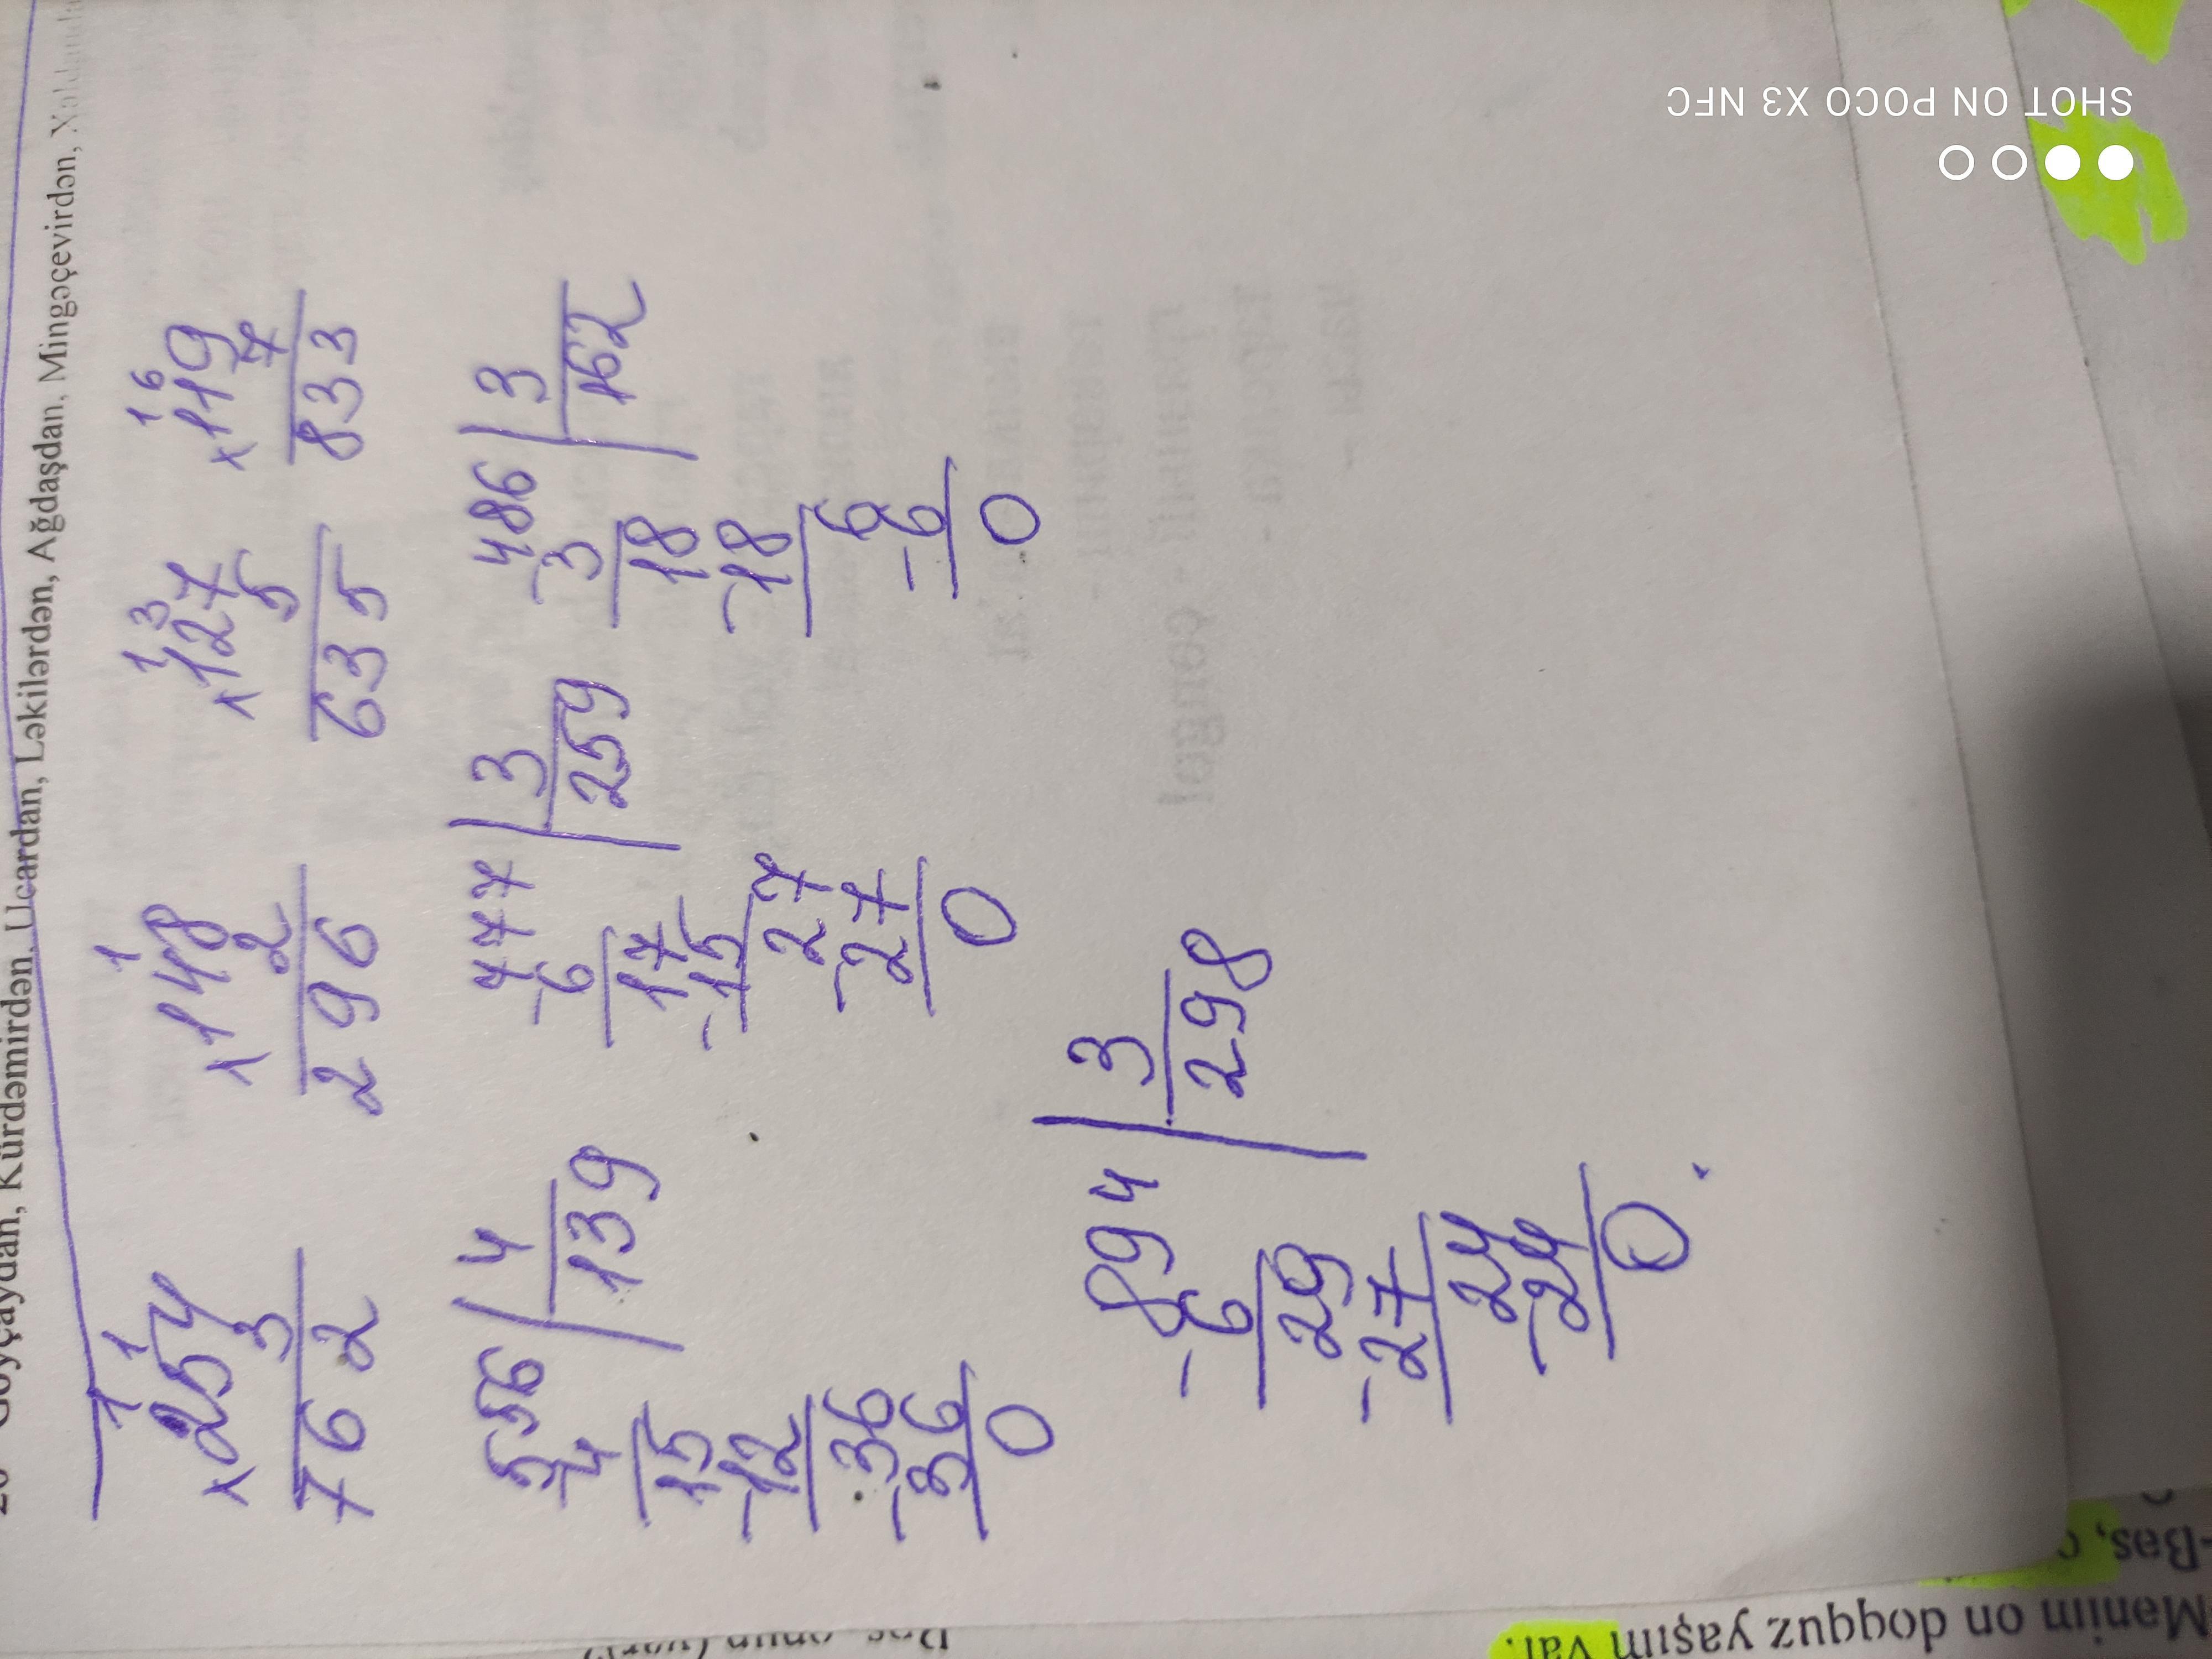 Göyçaydan, Kürdəmirdən, Ucardan, Ləkilərdən, Ağdaşdan, Mingəçevirdən,
1 1 1 1 3 1 6
×254 ×148 ×127 ×119
3 2 5 7
762 296 635 833
556 | 4 777 | 3 486 | 3
-4 139 -6 259 -3 162
15 17 18
-12 -15 -18
36 27 6
-36 -27 -6
0 0 0
894 | 3
-6 298
29
-27
24
-24
0
SHOT ON POCO X3 NFC
Mənim on doqquz yaşım var.
-Bəs,